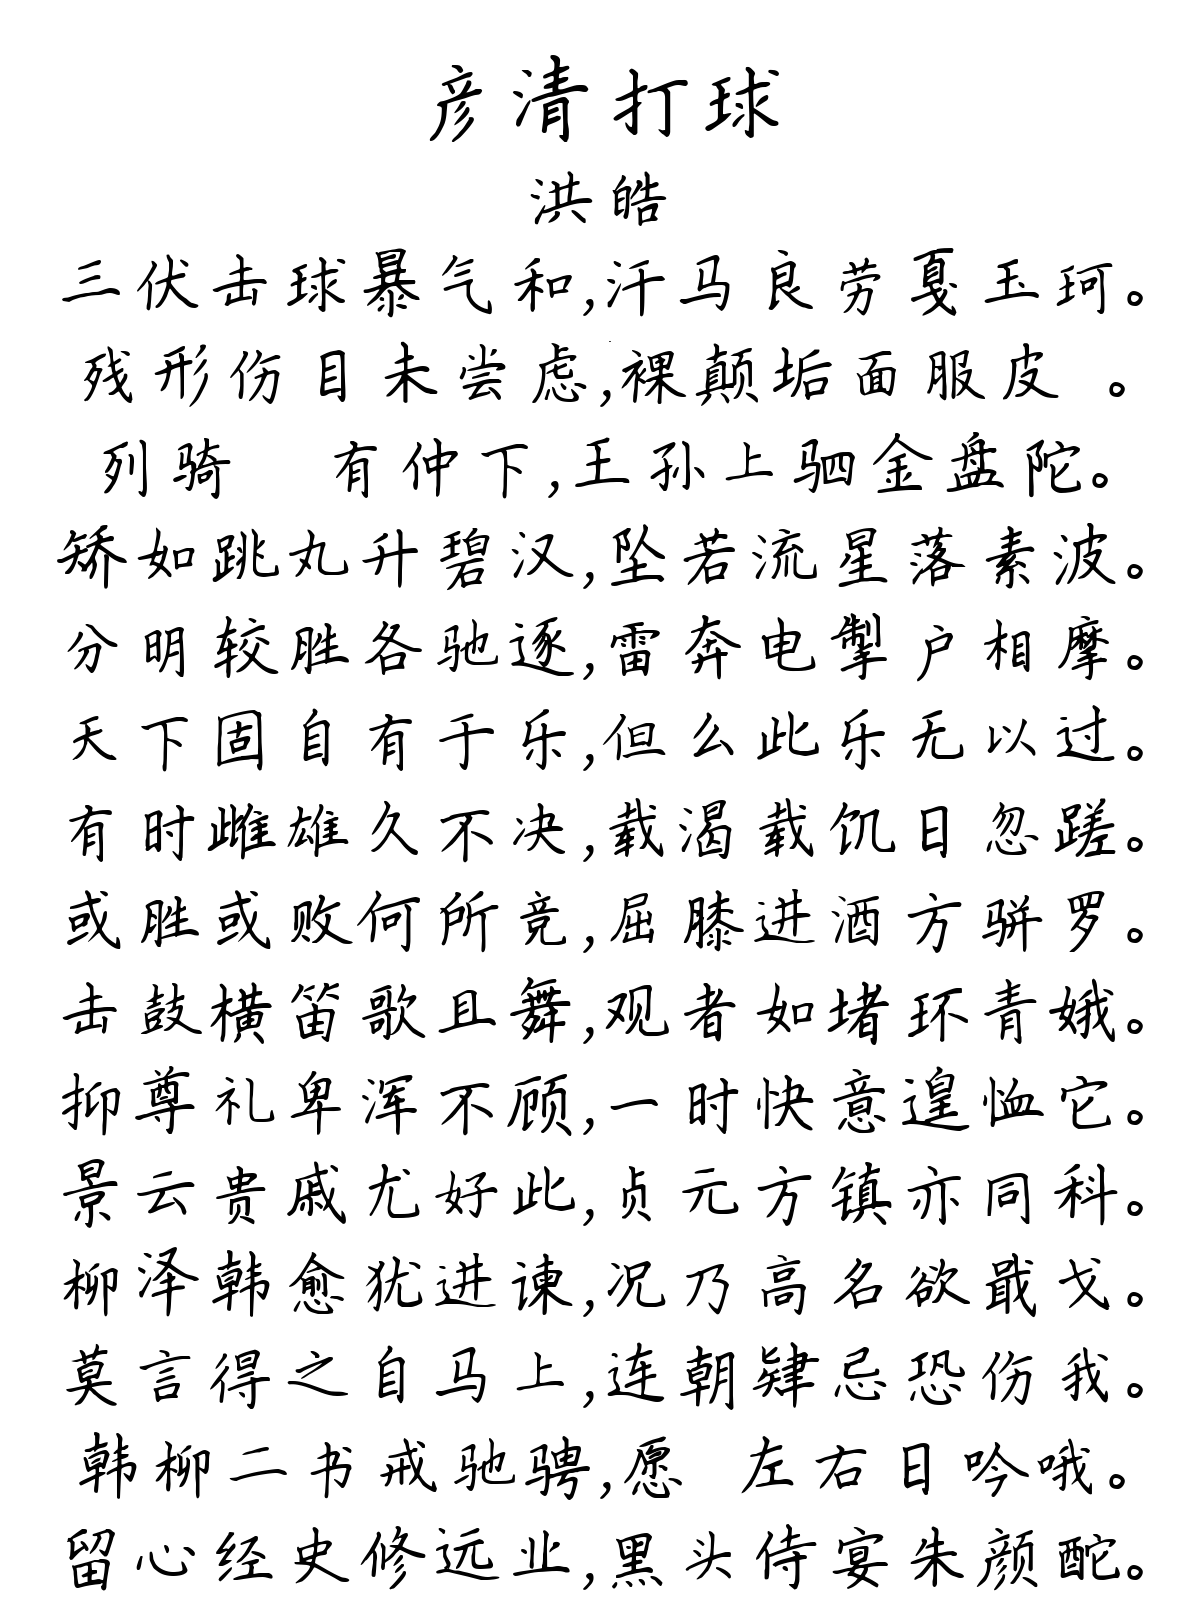 彦清打球
洪皓
三伏击球暴气和,汗马良劳戛玉珂。
残形伤目未尝虑,裸颠垢面服皮 。
列骑 有仲下,王孙上驷金盘陀。
矫如跳丸升碧汉,坠若流星落素波。
分明较胜各驰逐,雷奔电掣户相摩。
天下固自有于乐,但么此乐无以过。
有时雌雄久不决,载渴载饥日忽蹉。
或胜或败何所竞,屈膝进酒方骈罗。
击鼓横笛歌且舞,观者如堵环青娥。
抑尊礼卑浑不顾,一时快意遑恤它。
景云贵戚尤好此,贞元方镇亦同科。
柳泽韩愈犹进谏,况乃高名欲戢戈。
莫言得之自马上,连朝肄忌恐伤我。
韩柳二书戒驰骋,愿 左右日吟哦。
留心经史修远业,黑头侍宴朱颜酡。